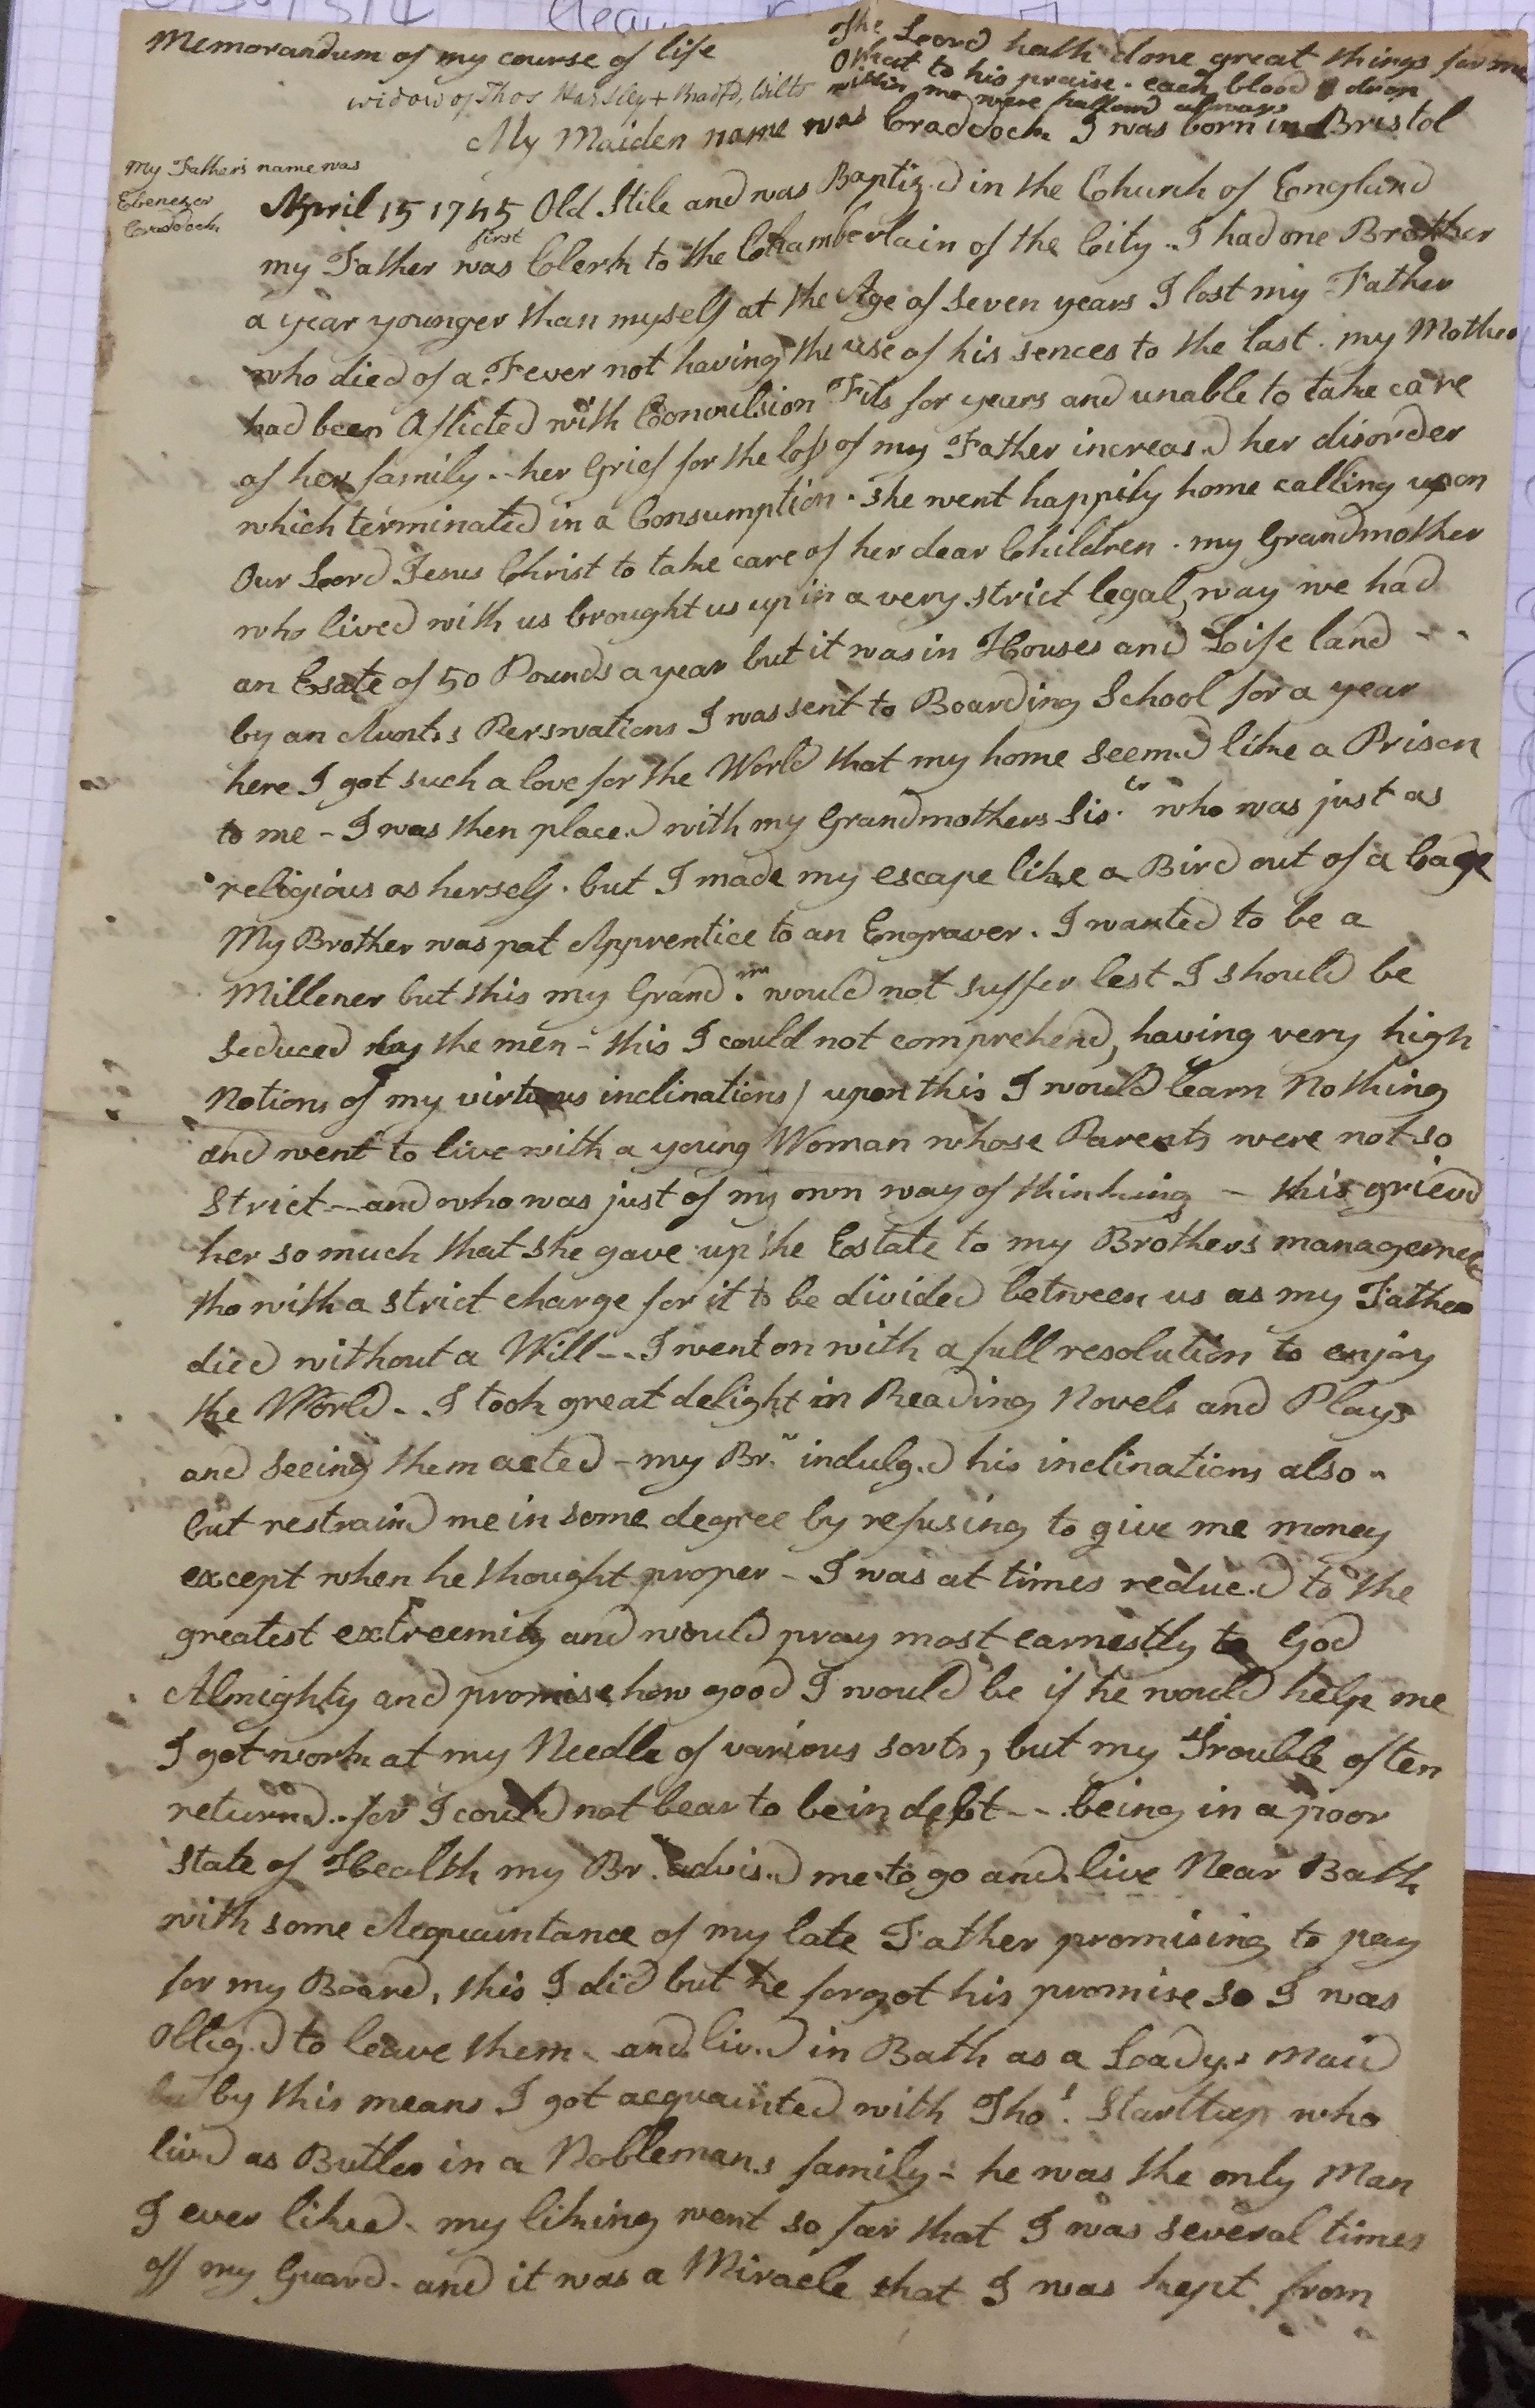 Memorandum of my course of life
The Lord hath done great things for me
O that to his praise. each blood drop
within me were hallow'd always
widow of Thos + Bradfd, Wilts
My Maiden name was Craddock I was born in Bristol
My Father's name was
Ebenezer
Craddock
April 15 1745 Old Stile and was Baptiz.d in the Church of England
my Father was first Clerk to the Chamberlain of the City .. I had one Brother
a year younger than myself at the Age of seven years I lost my Father
who died of a Fever not having the use of his sences to the last . my Mother
had been Aflicted with Convulsion Fits for years and unable to take care
of her family .. her Grief for the loss of my Father increas.d her disorder
which terminated in a Consumption . she went happily home calling upon
Our Lord Jesus Christ to take care of her dear Children . my Grandmother
who lived with us brought us up in a very strict legal way we had
an Esate of 50 Pounds a year but it was in Houses and Life land - -
by an Aunt.s Perswations I was sent to Boarding School for a year
here I got such a love for the World that my home seem.d like a Prison
to me - I was then place.d with my Grandmothers Sis.er who was just as
religious as herself . but I made my escape like a Bird out of a Cage
My Brother was put Apprentice to an Engraver . I wanted to be a
Millener but this my Grand.m would not suffer lest I should be
seduced by the men - this I could not comprehend, having very high
Notions of my virtuous inclinations / upon this I would learn Nothing
and went to live with a young Woman whose Parents were not so
strict -- and who was just of my own way of thinking - this griev'd
her so much that she gave up the Estate to my Brothers management
tho with a strict charge for it to be divided between us as my Father
died without a Will -- I went on with a full resolution to enjoy
the World - I took great delight in Reading Novels and Plays
and seeing them acted - my Br.r indulg.d his inclinations also -
but restrain'd me in some degree by refusing to give me money
except when he thought proper - I was at times reduc.d to the
greatest extreemity and would pray most earnestly to God
Almighty and promise how good I would be if he would help me
I got work at my Needle of various sorts, but my Trouble often
return'd .. for I could not bear to be in debt -- being in a poor
state of Health my Br. advis.d me to go and live Near Bath
with some Acquaintance of my late Father promising to pay
for my Board, this I did but he forgot his promise so I was
Oblig.d to leave them - and liv.d in Bath as a Lady.s maid
by this means I got acquainted with Tho.s Starttup who
liv'd as Butler in a Nobleman.s family - he was the only Man
I ever liked - my liking went so far that I was several times
off my Guard - and it was a Miracle that I was kept from